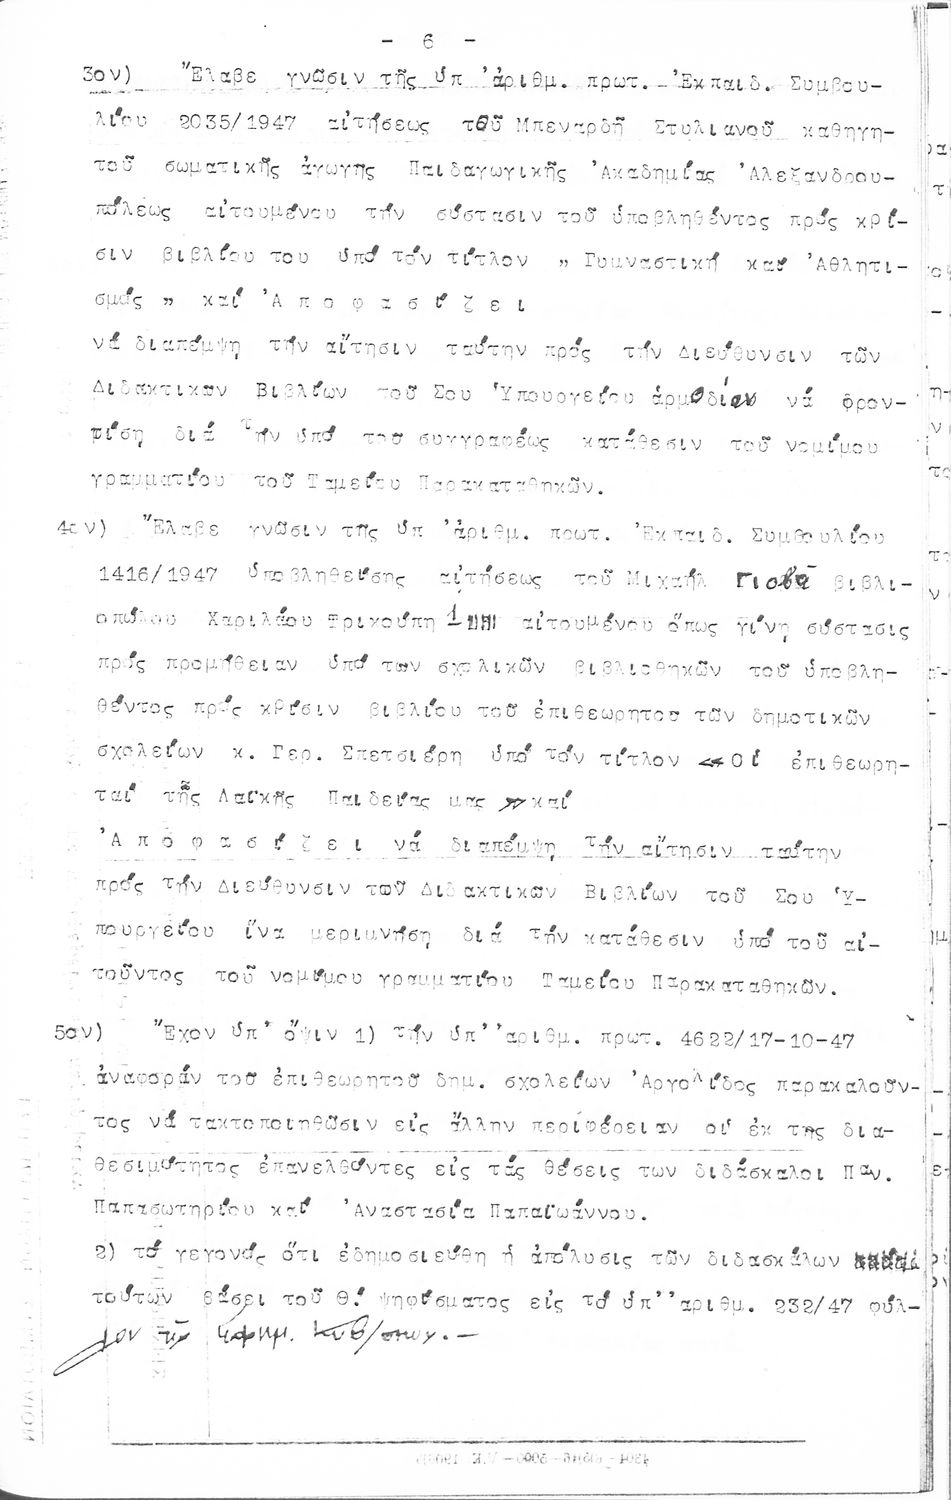 - 6 -
3ον) Ἔλαβε γνῶσιν τῆς ὑπ 'ἀριθμ. πρωτ. Ἐκπαιδ. Συμβου-
λίου 2035/1947 αἰτήσεως τοῦ Μπεναρδῆ Στυλιανοῦ καθηγη-
τοῦ σωματικῆς ἀγωγῆς Παιδαγωγικῆς Ἀκαδημίας Ἀλεξανδρου-
πόλεως αἰτουμένου τήν σύστασιν τοῦ ὑποβληθέντος πρός κρί-
σιν βιβλίου του ὑπό τόν τίτλον „ Γυμναστική καί Ἀθλητι-
σμός „ καί Ἀ π ο φ α σ ί ζ ε ι
νά διαπέμψη τήν αἴτησιν ταύτην πρός τήν Διεύθυνσιν τῶν
Διδακτικων Βιβλίων τοῦ Σου Ὑπουργείου ἁρμοδίαν νά φρον-
τίση διά τήν ὑπό του συγγραφέως κατάθεσιν τοῦ νομίμου
γραμματίου τοῦ Ταμείου Παρακαταθηκῶν.
4ον) Ἔλαβε γνῶσιν τῆς ὑπ 'ἀριθμ. πρωτ. Ἐκπαιδ. Συμβουλίου
1416/1947 ὑποβληθείσης αἰτήσεως τοῦ Μιχαήλ Γιοβᾶ βιβλι-
οπώλου Χαριλάου Τρικούπη 1 αἰτουμένου ὅπως γίνη σύστασις
πρός προμήθειαν ὑπό των σχολικῶν βιβλιοθηκῶν τοῦ ὑποβλη-
θέντος πρός κρίσιν βιβλίου τοῦ ἐπιθεωρητου τῶν δημοτικῶν
σχολείων κ. Γερ. Σπετσιέρη ὑπό τόν τίτλον « Οἱ ἐπιθεωρη-
ταί τῆς Λαϊκῆς Παιδείας μας » καί
Ἀ π ο φ α σ ί ζ ε ι νά διαπέμψη τήν αἴτησιν ταύτην
πρός τήν Διεύθυνσιν τῶν Διδακτικων Βιβλίων τοῦ Σου Ὑ-
πουργείου ἵνα μεριμνήση διά τήν κατάθεσιν ὑπό τοῦ αἰ-
τοῦντος τοῦ νομίμου γραμματίου Ταμείου Παρακαταθηκῶν.
5ον) Ἔχον ὑπ' ὄψιν 1) τήν ὑπ' 'αριθμ. πρωτ. 4622/17-10-47
ἀναφοράν του ἐπιθεωρητοῦ δημ. σχολείων Ἀργολίδος παρακαλοῦν-
τος νά τακτοποιηθῶσιν εἰς ἄλλην περιφέρειαν οἱ ἐκ της δια-
θεσιμότητος ἐπανελθόντες εἰς τάς θέσεις των διδάσκαλοι Παν.
Παπασωτηρίου καί Ἀναστασία Παπαϊωάννου.
2) τό γεγονός ὅτι ἐδημοσιεύθη ἡ ἀπόλυσις τῶν διδασκάλων
τούτων βάσει τοῦ Θ! ψηφίσματος εἰς τό ὑπ' 'αριθμ. 232/47 φύλ-
λον τῆς ἐφημ. Κυβ/σεως.-